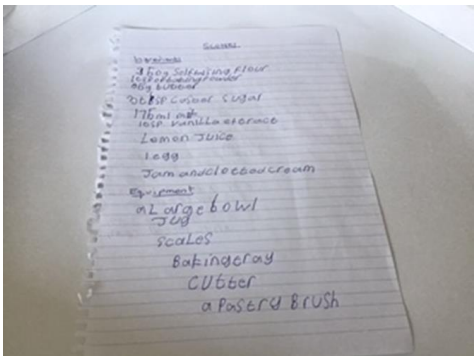 Scones
Ingredients
350g Self raising Flour
1tsp of baking Powder
85g butter
3tbsp Caster Sugar
175ml milk
1tsp vanilla
Lemon Juice
1 egg
Jam and clotted cream
Equipment
a Large bowl
Jug
Scales
Baking tray
Cutter
a Pastry Brush